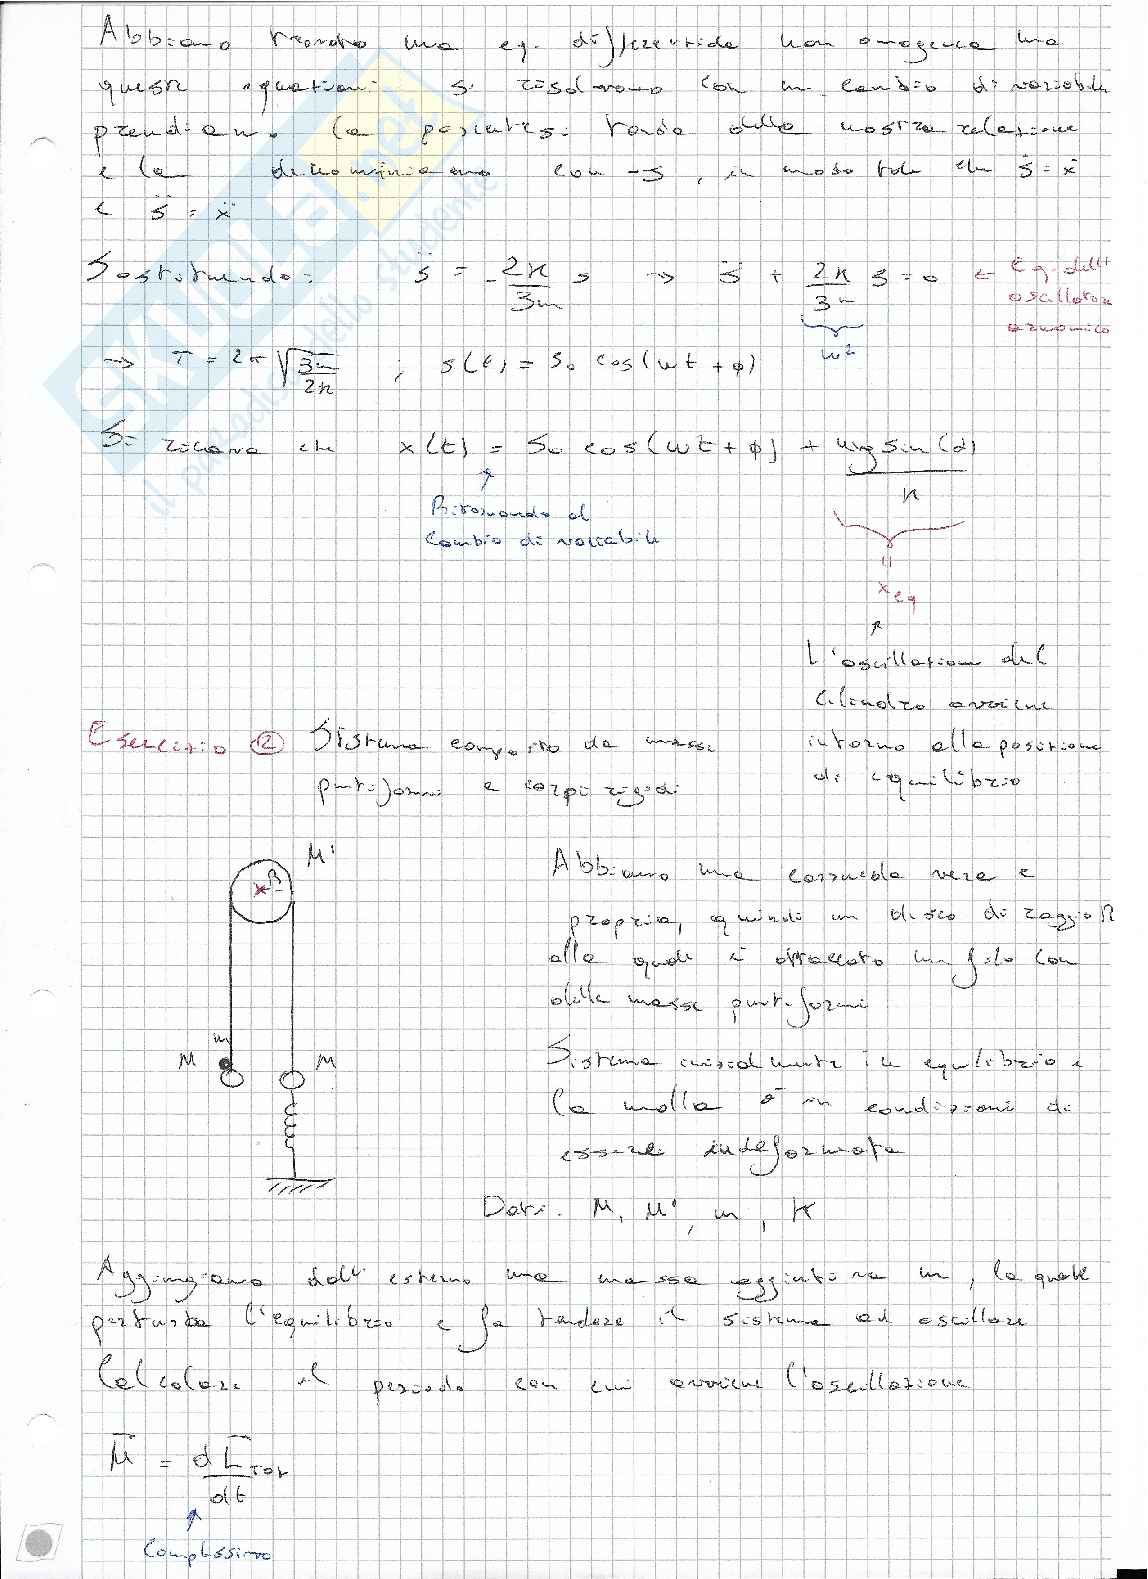 Abbiamo trovato una eq. differenziale non omogenea ma
queste equazioni si risolvono con un cambio di variabile
prendiamo la parentesi tonda della nostra relazione
e la denominiamo con -s, in modo tale che ṡ = ẋ
e s̈ = ẍ
Sostituendo: s̈ = -2K/3m s → s̈ + 2K/3m s = 0 ← Eq. dell'
oscillatore
armonico
ω²
→ T = 2π √(3m/2K) ; s(t) = s₀ cos(ωt + φ)
Si ricava che x(t) = S₀ cos(ωt + φ) + mg sin(α)/K
Ritornando al
cambio di variabile
x eq
L'oscillazione del
cilindro avviene
intorno alla posizione
di equilibrio
Esercizio 2 Sistema composto da masse
puntiformi e corpi rigidi
M'
R
m
M M
Abbiamo una carrucola vera e
propria, quindi un disco di raggio R
alla quale è attaccato un filo con
delle masse puntiformi
Sistema inizialmente in equilibrio e
la molla è in condizioni di
essere indeformata
Dati: M, M', m, K
Aggiungiamo dall'esterno una massa aggiuntiva m, la quale
perturba l'equilibrio e fa tendere il sistema ad oscillare
Calcolare il periodo con cui avviene l'oscillazione
M = dL TOT/dt
Complessivo
SKUOLA.net
il paradiso dello studente